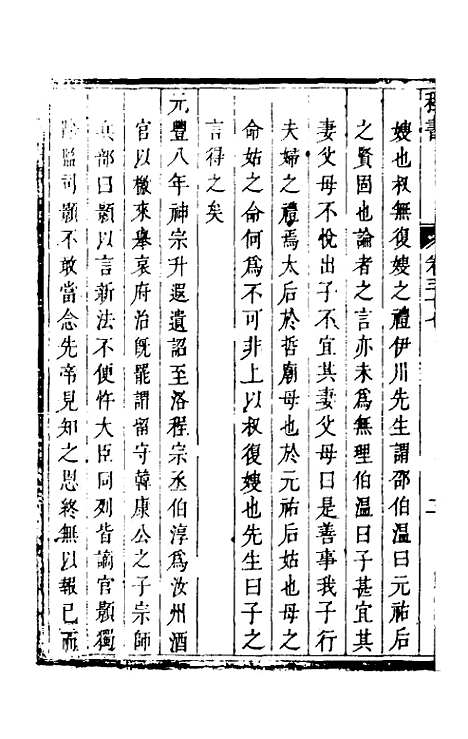 嫂也叔無復嫂之禮伊川先生謂邵伯温曰元祐后
之賢固也論者之言亦未爲無理伯温曰子甚宜其
妻父母不悅出子不宜其妻父母曰是善事我子行
夫婦之禮焉太后於哲廟母也於元祐后姑也母之
命姑之命何爲不可非上以叔復嫂也先生曰子之
言得之矣
元豐八年神宗升遐遺詔至洛程宗丞伯淳爲汝州酒
官以檄來舉哀府治旣罷謂留守韓康公之子宗師
兵部曰顥以言新法不便忤大臣同列皆謫官顥獨
監司顥不敢當念先帝見知之恩終無以報已而
程書
卷三十七
二